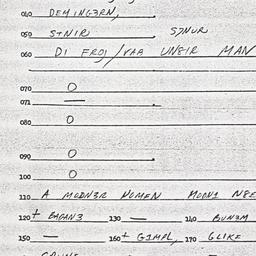 040 DEMINGERN,
050 STNIR S7NUR
060 DI FROI/VAB UNSIR MAN
070 O
071 —
080 O
090 O
100 O
110 A MODN3R NOMEN MODN1
120 ± BAGAN3 130 — 140 BUN3M
150 — 160 ± GIMPL, 170 GLIKE